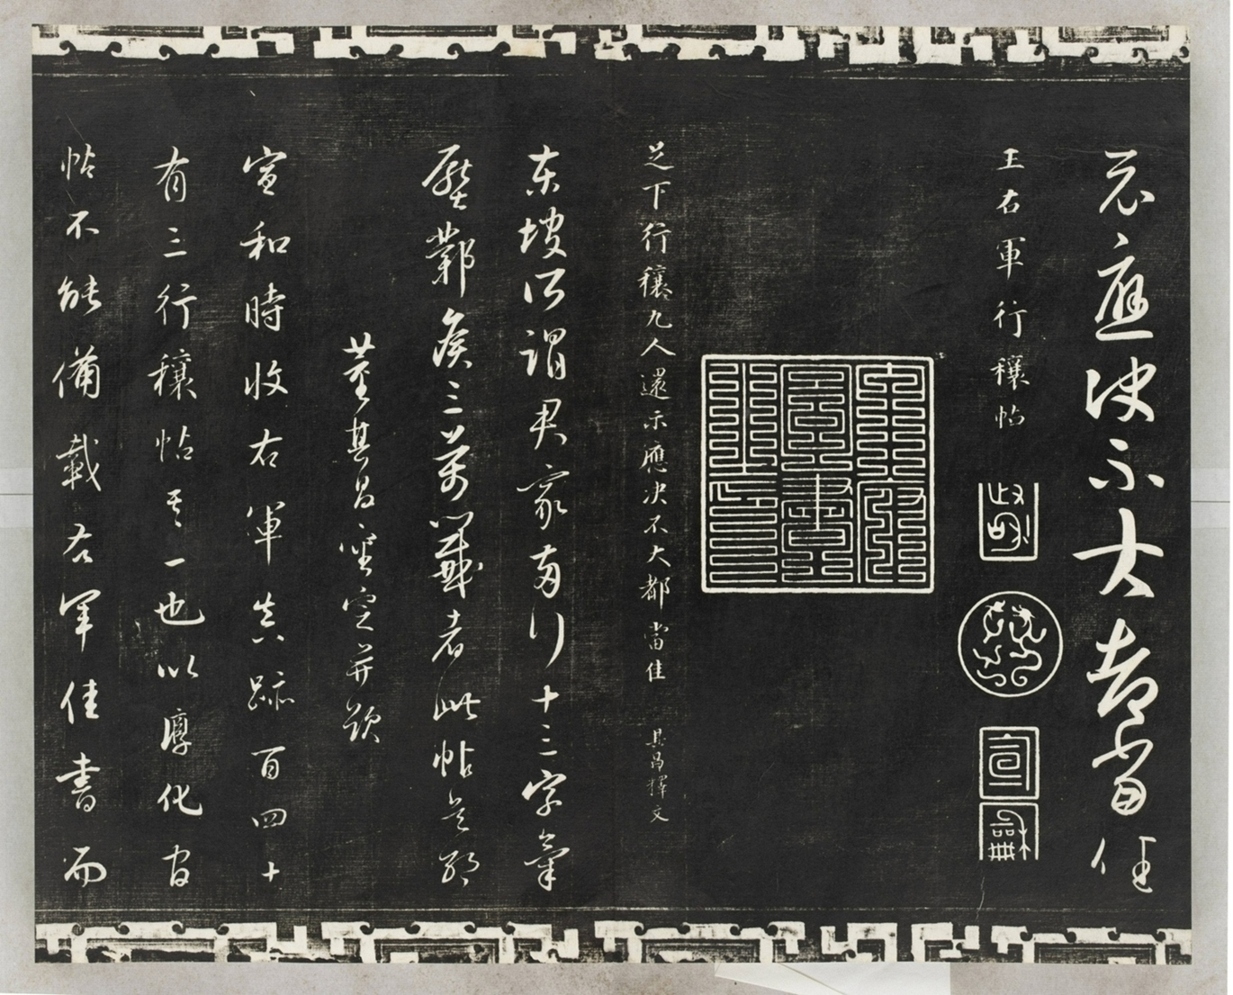 示應決不大都當佳
王右軍行穰帖
宣
龢
足下行穰九人還示應決不大都當佳 其昌釋文
東坡所謂君家兩行十三字氣
壓鄴侯三萬籤者此帖是耶
董其昌審定并題
宣和時收右軍真跡百四十
有三行穰帖其一也以淳化官
帖不能備載右軍佳書而